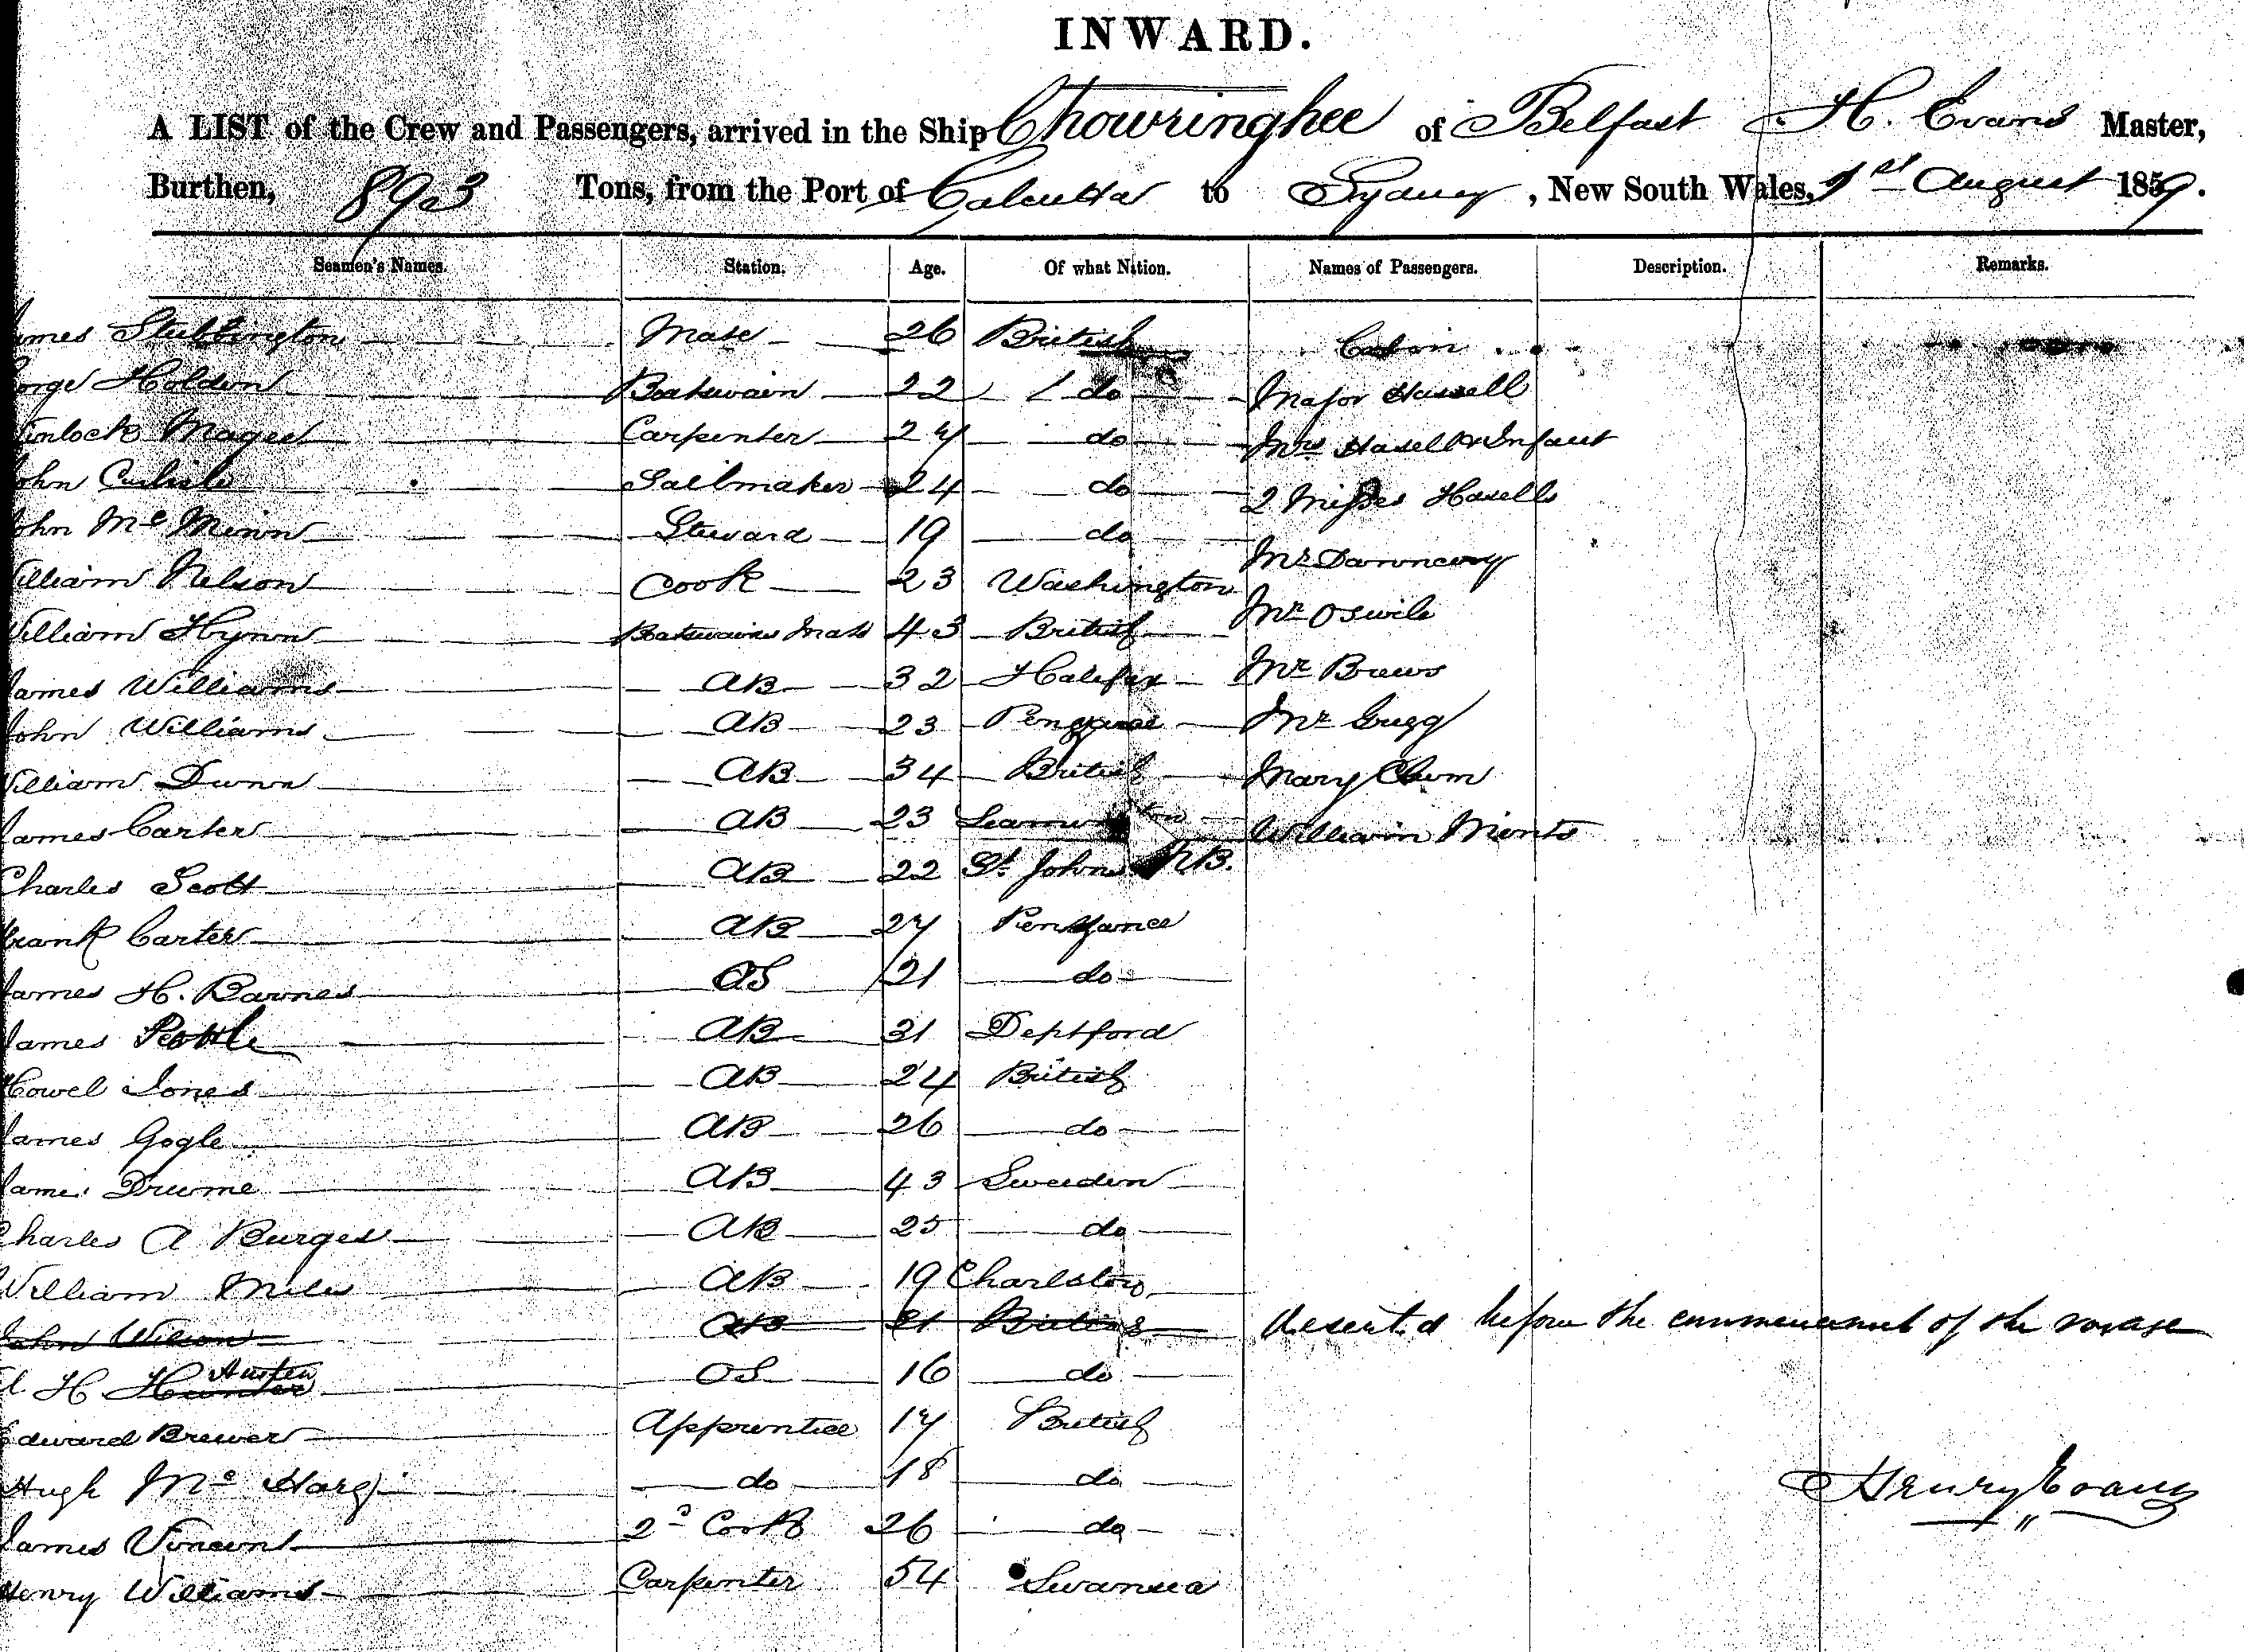 INWARD.
A LIST of the Crew and Passengers, arrived in the Ship Chowringhee of Belfast H. Evans Master,
Burthen, 893 Tons, from the Port of Calcutta to Sydney, New South Wales, 1st August 1859.
Seamen's Names. Station. Age. Of what Nation. Names of Passengers. Description. Remarks.
ames Stubbington Mate 26 British Cabin
orge Holden Boatswain 22 do Major Hassell
inlock Magee Carpenter 27 do Mrs Hasell & Infant
ohn Carlisle Sailmaker 24 do 2 Misses Hasells
ohn McMinn Steward 19 do Mr
William Nelson Cook 23 Washington Mr
William Hynn Boatswains Mate 43 British Mr Brews
James Williams AB 32 Halifax Mr Gregg
John Williams AB 23 Mary
William Dunn AB 34 British William
James Carter AB 23
Charles Scott AB 22 St. Johns NB.
Frank Carter AB 27 Penzance
James H. Barnes OS 21 do
James AB 31 Deptford
Howel Jones AB 24 British
James Gogle AB 26 do
James Drume AB 43 Sweeden
Charles A Burges AB 25 do
William Miles AB 19 Charlston
John Wilson AB 21 British deserted before the commencement of the voyage
H Hunter Austen OS 16 do
Edward Brewer Apprentice 17 British
Hugh Mc Harg do 18 do
James Vincent 2d Cook 26 do
Henry Williams Carpenter 54 Swansea
Henry Evans